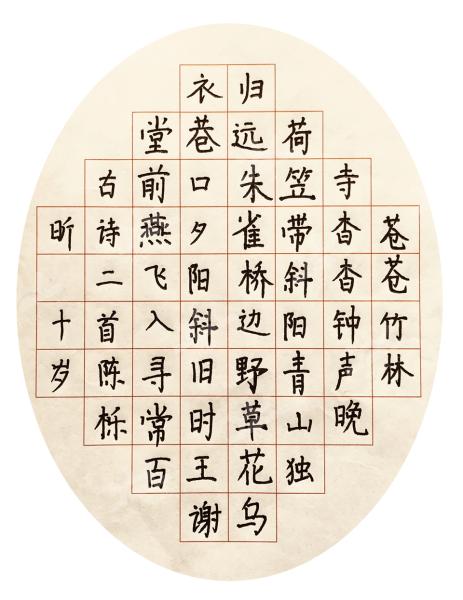 苍苍竹林
寺杳杳钟声晚
荷笠带斜阳青山独
归远朱雀桥边野草花乌
衣巷口夕阳斜旧时王谢
堂前燕飞入寻常百
古诗二首陈栎
昕 十岁